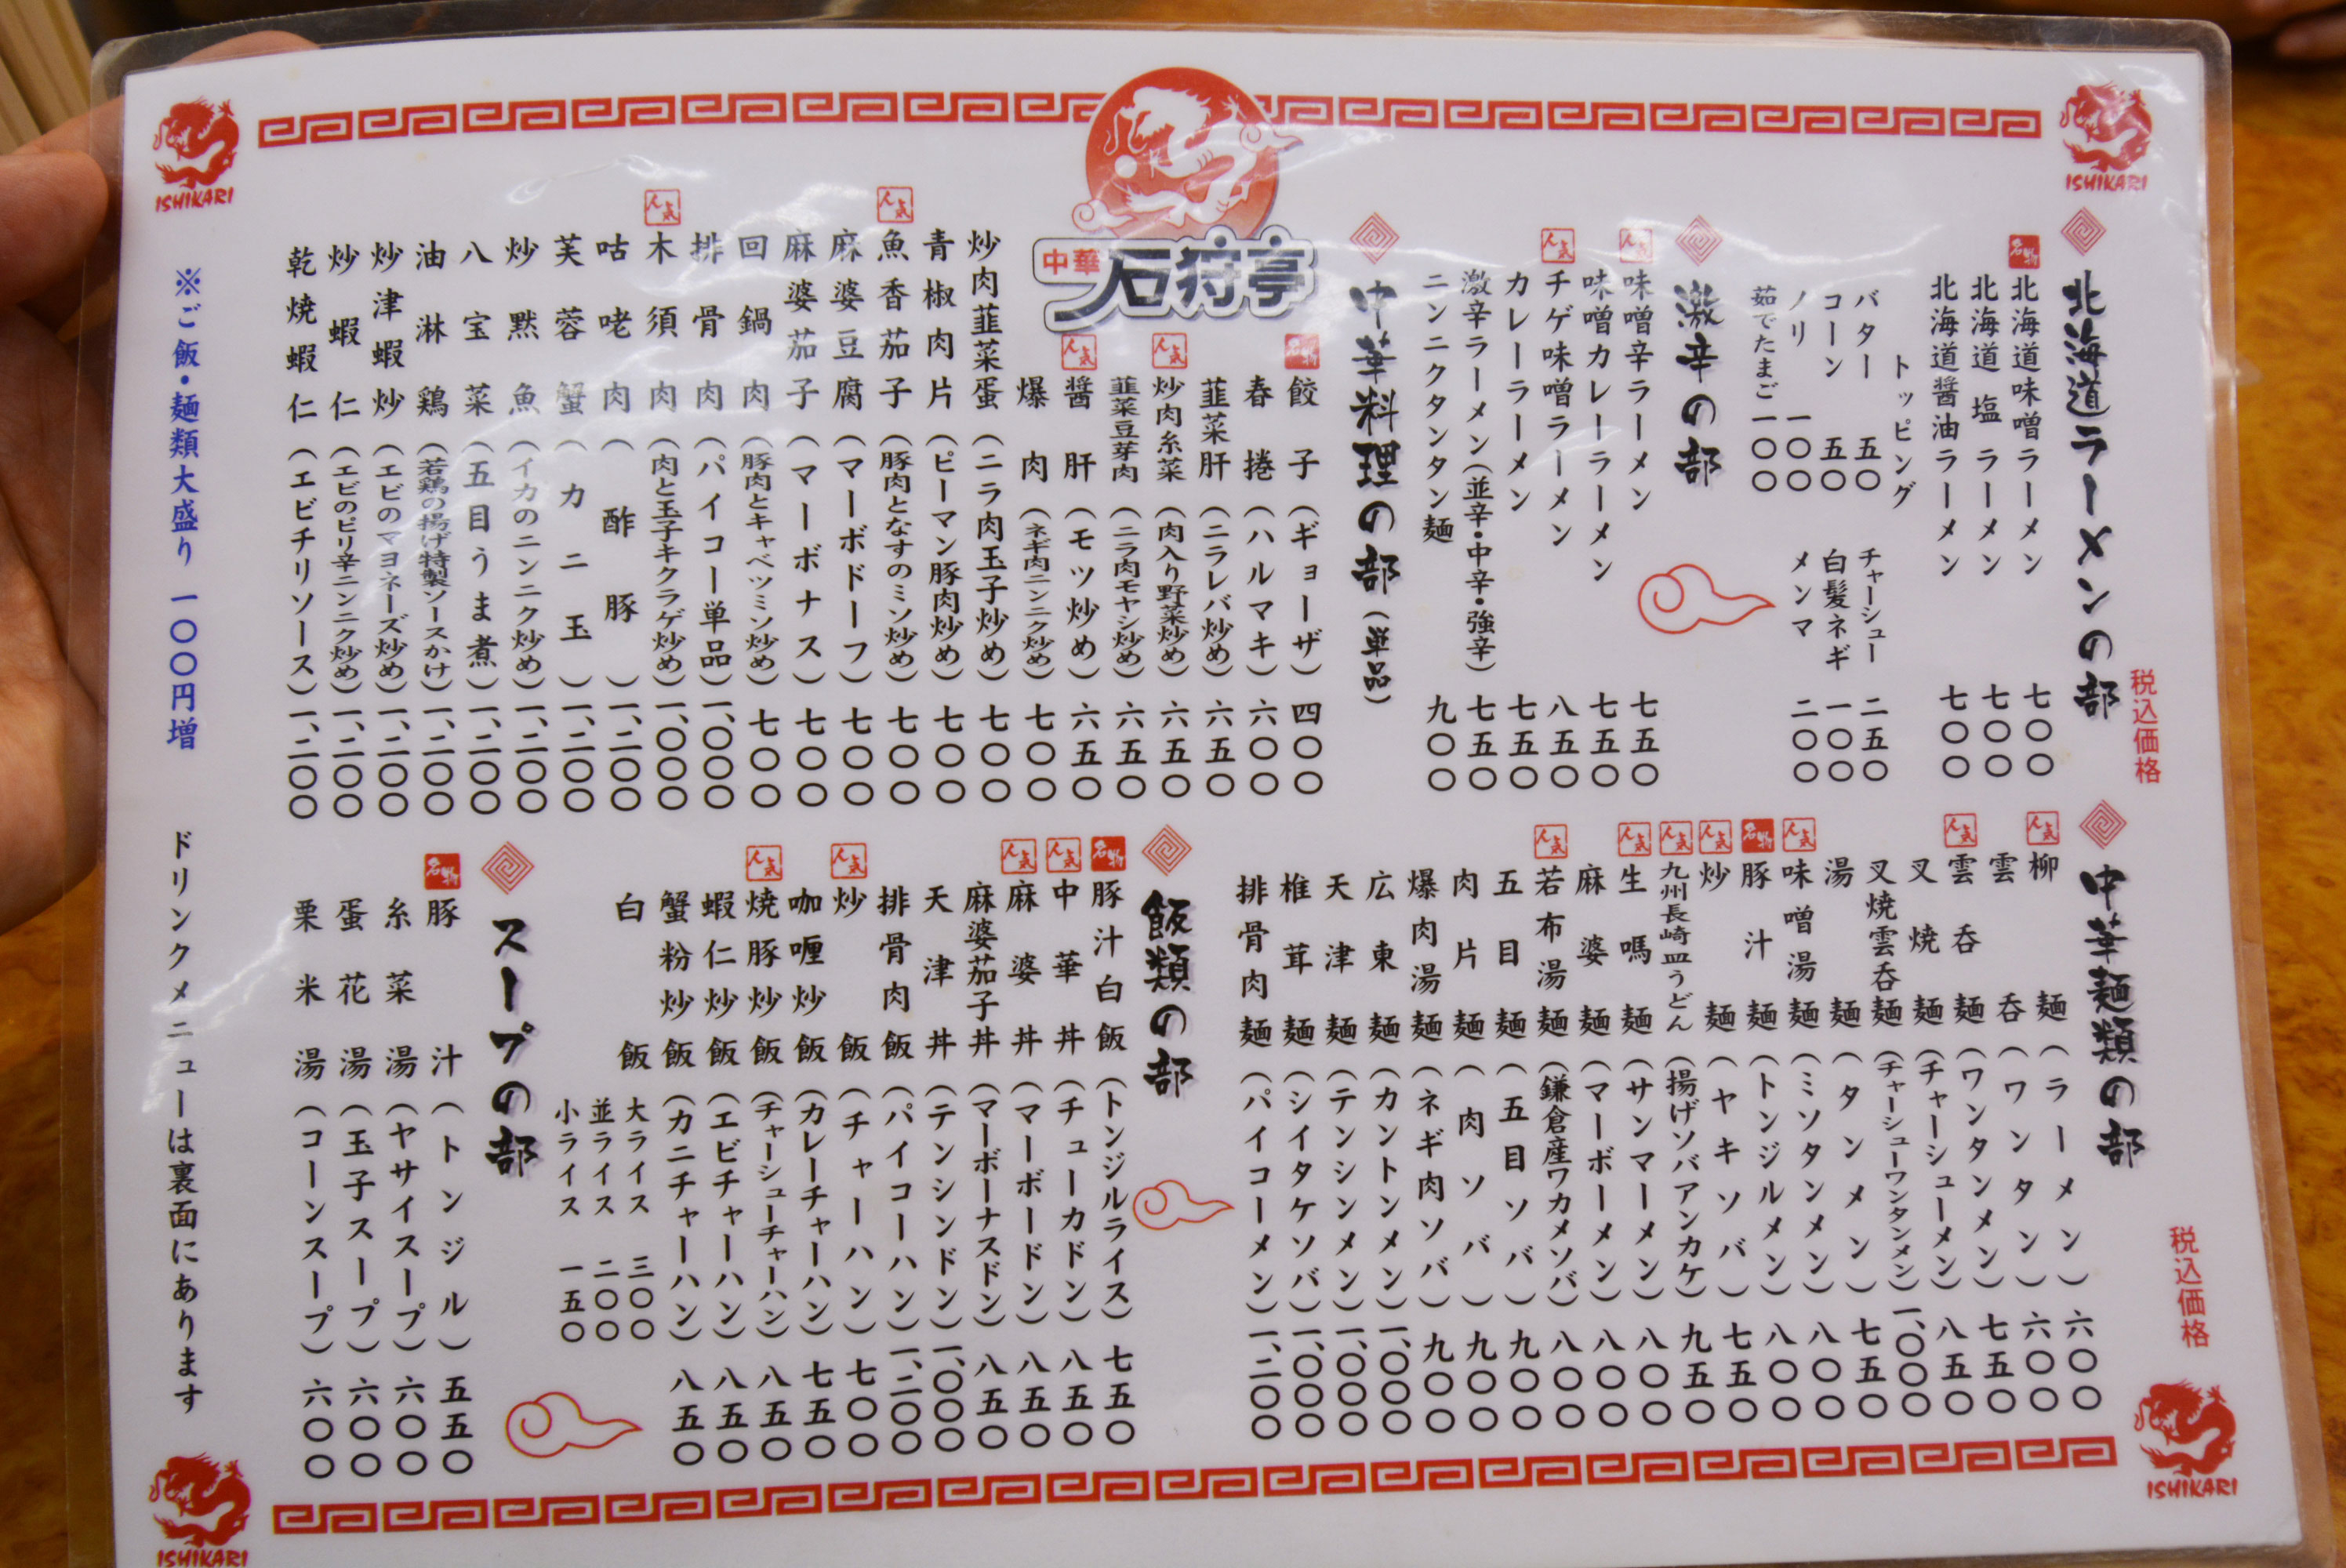 税込価格
北海道ラーメンの部
名物 北海道味噌ラーメン 七〇〇
北海道 塩 ラーメン 七〇〇
北海道醤油ラーメン 七〇〇
トッピング
バター 五〇 チャーシュー 二五〇
コーン 五〇 白髪ネギ 一〇〇
ノリ 一〇〇 メンマ 二〇〇
茹でたまご 一〇〇
激辛の部
人気 味噌辛ラーメン 七五〇
味噌カレーラーメン 七五〇
人気 チゲ味噌ラーメン 八五〇
カレーラーメン 七五〇
激辛ラーメン(並辛・中辛・強辛) 七五〇
ニンニクタンタン麺 九〇〇
中華料理の部(単品)
名物 餃子(ギョーザ) 四〇〇
春捲(ハルマキ) 六〇〇
韮菜肝(ニラレバ炒め) 六五〇
人気 炒肉糸菜(肉入り野菜炒め) 六五〇
韮菜豆芽肉(ニラ肉モヤシ炒め) 六五〇
人気 醤肝(モツ炒め) 六五〇
爆肉(ネギ肉ニンニク炒め) 七〇〇
中華 石狩亭
炒肉韮菜蛋(ニラ肉玉子炒め) 七〇〇
青椒肉片(ピーマン豚肉炒め) 七〇〇
人気 魚香茄子(豚肉となすのミソ炒め) 七〇〇
麻婆豆腐(マーボドーフ) 七〇〇
麻婆茄子(マーボナス) 七〇〇
回鍋肉(豚肉とキャベツミソ炒め) 七〇〇
排骨肉(パイコー単品) 一、〇〇〇
人気 木須肉(肉と玉子キクラゲ炒め) 一、〇〇〇
咕咾肉(酢豚) 一、二〇〇
芙蓉蟹(カニ玉) 一、二〇〇
炒黙魚(イカのニンニク炒め) 一、二〇〇
八宝菜(五目うま煮) 一、二〇〇
油淋鶏(若鶏の揚げ特製ソースかけ) 一、二〇〇
炒津蝦炒(エビのマヨネーズ炒め) 一、二〇〇
炒蝦仁(エビのピリ辛ニンニク炒め) 一、二〇〇
乾焼蝦仁(エビチリソース) 一、二〇〇
税込価格
中華麺類の部
人気 柳麺(ラーメン) 六〇〇
雲呑(ワンタン) 六〇〇
人気 雲呑麺(ワンタンメン) 七五〇
叉焼麺(チャーシューメン) 八五〇
叉焼雲呑麺(チャーシューワンタンメン) 一、〇〇〇
湯麺(タンメン) 七五〇
人気 味噌湯麺(ミソタンメン) 八〇〇
名物 豚汁麺(トンジルメン) 八〇〇
人気 炒麺(ヤキソバ) 七五〇
人気 九州長崎皿うどん(揚げソバアンカケ) 九五〇
人気 生嗎麺(サンマーメン) 八〇〇
麻婆麺(マーボーメン) 八〇〇
人気 若布湯麺(鎌倉産ワカメソバ) 八〇〇
五目麺(五目ソバ) 九〇〇
肉片麺(肉ソバ) 九〇〇
爆肉湯麺(ネギ肉ソバ) 九〇〇
広東麺(カントンメン) 一、〇〇〇
天津麺(テンシンメン) 一、〇〇〇
椎茸麺(シイタケソバ) 一、〇〇〇
排骨肉麺(パイコーメン) 一、二〇〇
飯類の部
名物 豚汁白飯(トンジルライス) 七五〇
人気 中華丼(チューカドン) 八五〇
人気 麻婆丼(マーボードン) 八五〇
麻婆茄子丼(マーボーナスドン) 八五〇
天津丼(テンシンドン) 一、〇〇〇
排骨肉飯(パイコーハン) 一、二〇〇
人気 炒飯(チャーハン) 七〇〇
咖喱炒飯(カレーチャーハン) 七五〇
人気 焼豚炒飯(チャーシューチャーハン) 八五〇
蝦仁炒飯(エビチャーハン) 八五〇
蟹粉炒飯(カニチャーハン) 八五〇
白飯 大ライス 三〇〇
並ライス 二〇〇
小ライス 一五〇
スープの部
名物 豚汁(トンジル) 五五〇
糸菜湯(ヤサイスープ) 六〇〇
蛋花湯(玉子スープ) 六〇〇
栗米湯(コーンスープ) 六〇〇
※ご飯・麺類大盛り 一〇〇円増
ドリンクメニューは裏面にあります
ISHIKARI
ISHIKARI
ISHIKARI
ISHIKARI